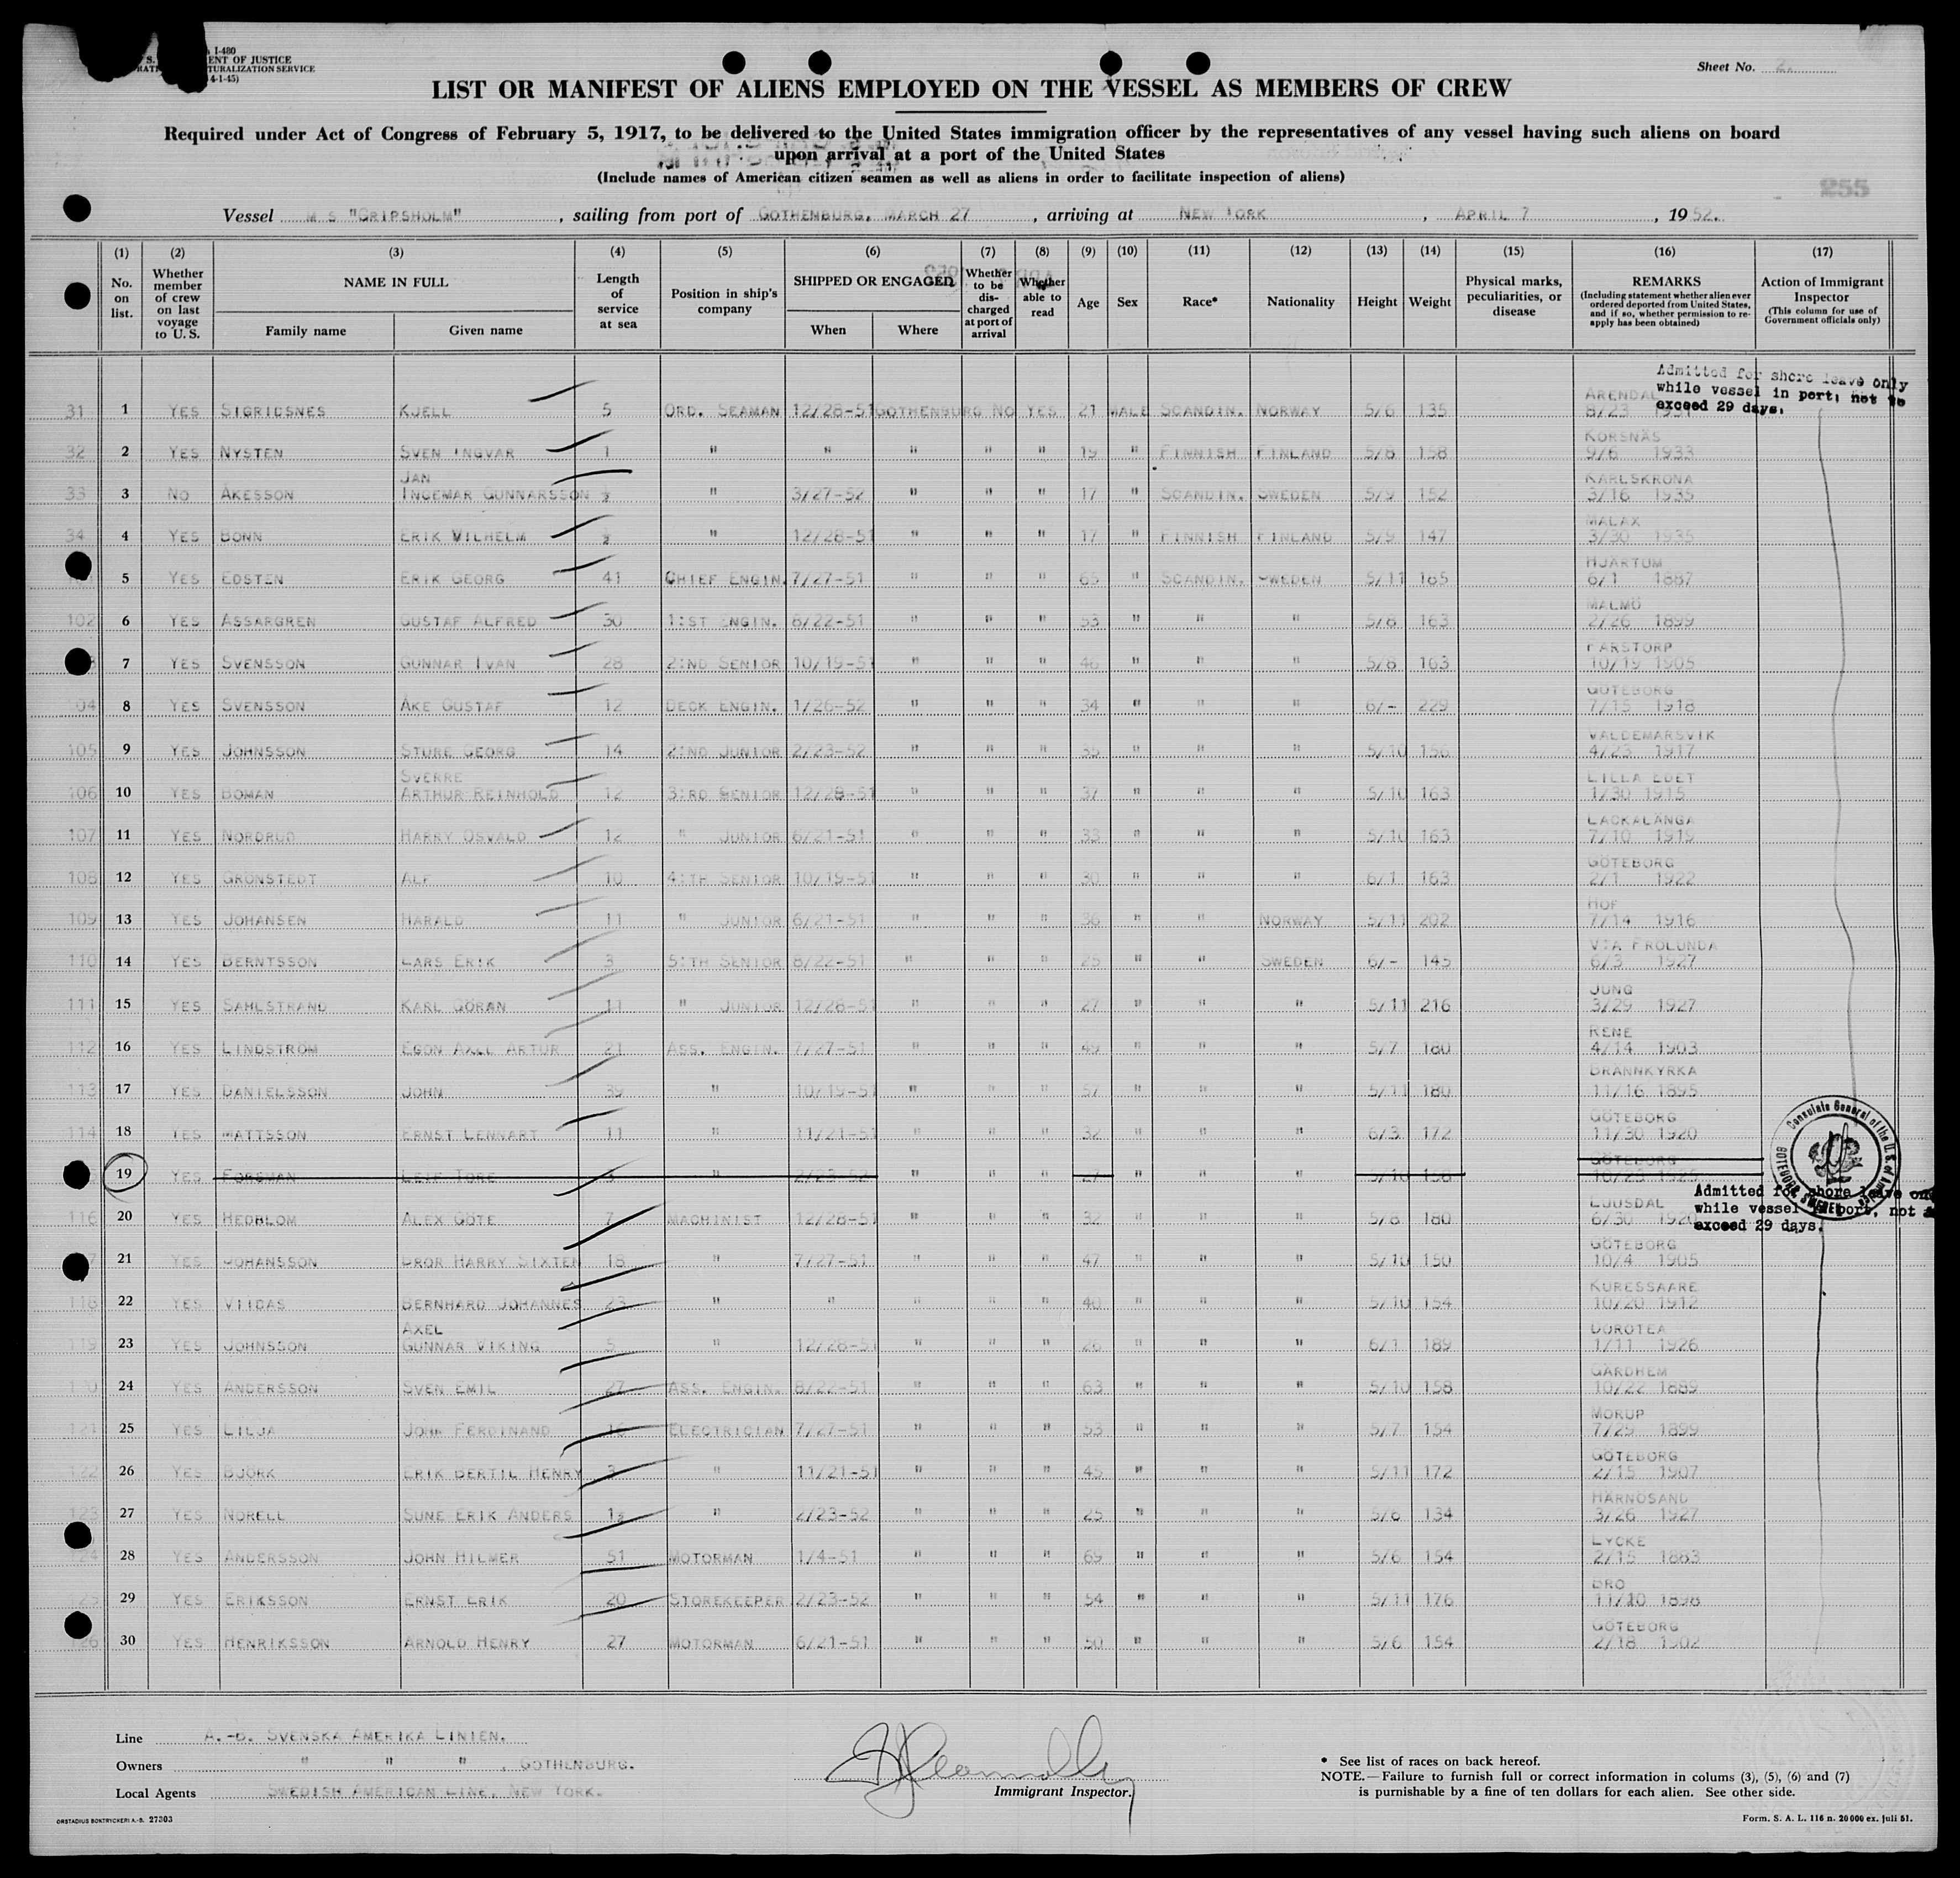 I-480
ENT OF JUSTICE
TURALIZATION SERVICE
4-1-45)
Sheet No. 2.
LIST OR MANIFEST OF ALIENS EMPLOYED ON THE VESSEL AS MEMBERS OF CREW
Required under Act of Congress of February 5, 1917, to be delivered to the United States immigration officer by the representatives of any vessel having such aliens on board
upon arrival at a port of the United States
(Include names of American citizen seamen as well as aliens in order to facilitate inspection of aliens)
255
Vessel M S "GRIPSHOLM", sailing from port of GOTHENBURG, MARCH 27, arriving at NEW YORK, APRIL 7, 1952.
(1) (2) (3) (4) (5) (6) (7) (8) (9) (10) (11) (12) (13) (14) (15) (16) (17)
No. on list. Whether member of crew on last voyage to U. S. NAME IN FULL Family name Given name Length of service at sea Position in ship's company SHIPPED OR ENGAGED When Where Whether to be discharged at port of arrival Whether able to read Age Sex Race* Nationality Height Weight Physical marks, peculiarities, or disease REMARKS (Including statement whether alien ever ordered deported from United States, and if so, whether permission to re-apply has been obtained) Action of Immigrant Inspector (This column for use of Government officials only)
Admitted for shore leave only
while vessel in port, not to
exceed 29 days.
31 1 YES SIGRIDSNES KJELL 5 ORD. SEAMAN 12/28-51 GOTHENBURG NO YES 21 MALE SCANDIN. NORWAY 5/6 135 ARENDAL 8/23
32 2 YES NYSTEN SVEN INGVAR 1 " " " " " 19 " FINNISH FINLAND 5/8 158 KORSNÄS 9/6 1933
33 3 NO ÅKESSON JAN INGEMAR GUNNARSSON ½ " 3/27-52 " " " 17 " SCANDIN. SWEDEN 5/9 152 KARLSKRONA 3/16 1935
34 4 YES BONN ERIK VILHELM ½ " 12/28-51 " " " 17 " FINNISH FINLAND 5/9 147 MALAX 3/30 1935
5 YES EDSTEN ERIK GEORG 41 CHIEF ENGIN. 7/27-51 " " " 65 " SCANDIN. SWEDEN 5/11 165 HJÄRTUM 6/1 1887
102 6 YES ASSARGREN GUSTAF ALFRED 30 1:ST ENGIN. 8/22-51 " " " 53 " " " 5/8 163 MALMÖ 2/26 1899
7 YES SVENSSON GUNNAR IVAN 28 2:ND SENIOR 10/19-51 " " " 46 " " " 5/8 163 FARSTORP 10/19 1905
104 8 YES SVENSSON ÅKE GUSTAF 12 DECK ENGIN. 1/26-52 " " " 34 " " " 6/- 229 GÖTEBORG 7/15 1918
105 9 YES JOHNSSON STURE GEORG 14 2:ND JUNIOR 2/23-52 " " " 35 " " " 5/10 156 VALDEMARSVIK 4/23 1917
106 10 YES BOMAN SVERRE ARTHUR REINHOLD 12 3:RD SENIOR 12/28-51 " " " 37 " " " 5/10 163 LILLA EDET 1/30 1915
107 11 YES NORDRUD HARRY OSVALD 12 " JUNIOR 6/21-51 " " " 33 " " " 5/10 163 LACKALÄNGA 7/10 1919
108 12 YES GRÖNSTEDT ALF 10 4:TH SENIOR 10/19-51 " " " 30 " " " 6/1 163 GÖTEBORG 2/1 1922
109 13 YES JOHANSEN HARALD 11 " JUNIOR 6/21-51 " " " 36 " " NORWAY 5/11 202 HOF 7/14 1916
110 14 YES BERNTSSON LARS ERIK 3 5:TH SENIOR 8/22-51 " " " 25 " " SWEDEN 6/- 145 V:A FRÖLUNDA 6/3 1927
111 15 YES SAHLSTRAND KARL GÖRAN 11 " JUNIOR 12/28-51 " " " 27 " " " 5/11 216 JUNG 3/29 1927
112 16 YES LINDSTRÖM EGON AXEL ARTUR 21 ASS. ENGIN. 7/27-51 " " " 49 " " " 5/7 180 RENE 4/14 1903
113 17 YES DANIELSSON JOHN 39 " 10/19-51 " " " 57 " " " 5/11 180 BRÄNNKYRKA 11/16 1895
114 18 YES MATTSSON ERNST LENNART 11 " 11/21-51 " " " 32 " " " 6/3 172 GÖTEBORG 11/30 1920
19 YES FORSMAN LEIF TORE " 2/23-52 " " " 27 " " " 5/10 GÖTEBORG 10/23
Consulate General of the U. S. of America
GOTEBORG SWEDEN
Admitted for shore leave
while vessel port, not
exceed 29 days.
116 20 YES HEDBLOM ALEX GÖTE 7 MACHINIST 12/28-51 " " " 32 " " " 5/8 180 LJUSDAL 6/30 1920
21 YES JOHANSSON BROR HARRY SIXTEN 18 " 7/27-51 " " " 47 " " " 5/10 150 GÖTEBORG 10/4 1905
118 22 YES VIIDAS BERNHARD JOHANNES 23 " " " " " 40 " " " 5/10 154 KURESSAARE 10/20 1912
119 23 YES JOHNSSON AXEL GUNNAR VIKING 5 " 12/28-51 " " " 26 " " " 6/1 189 DOROTEA 1/11 1926
24 YES ANDERSSON SVEN EMIL 27 ASS. ENGIN. 8/22-51 " " " 63 " " " 5/10 158 GÄRDHEM 10/22 1889
121 25 YES LILJA JOHN FERDINAND 16 ELECTRICIAN 7/27-51 " " " 53 " " " 5/7 154 MORUP 7/29 1899
122 26 YES BJÖRK ERIK BERTIL HENRY 3 " 11/21-51 " " " 45 " " " 5/11 172 GÖTEBORG 2/15 1907
123 27 YES NORELL SUNE ERIK ANDERS 1½ " 2/23-52 " " " 25 " " " 5/6 134 HÄRNÖSAND 3/26 1927
124 28 YES ANDERSSON JOHN HILMER 51 MOTORMAN 1/4-51 " " " 69 " " " 5/6 154 LYCKE 2/15 1883
125 29 YES ERIKSSON ERNST ERIK 20 STOREKEEPER 2/23-52 " " " 54 " " " 5/11 176 BRO 11/10 1898
126 30 YES HENRIKSSON ARNOLD HENRY 27 MOTORMAN 6/21-51 " " " 50 " " " 5/6 154 GÖTEBORG 2/18 1902
Line A.-B. SVENSKA AMERIKA LINIEN.
Owners " " " , GOTHENBURG.
Local Agents SWEDISH AMERICAN LINE, NEW YORK.
Immigrant Inspector.
* See list of races on back hereof.
NOTE.—Failure to furnish full or correct information in colums (3), (5), (6) and (7)
is punishable by a fine of ten dollars for each alien. See other side.
ORSTADIUS BOKTRYCKERI A.-B. 27303
Form. S. A. L. 116 n. 20 000 ex. juli 51.